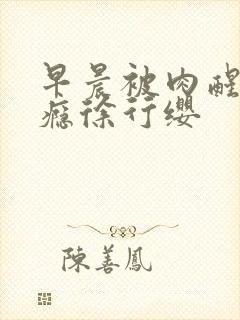 早晨被肉醒
瘾徐行缨
陳善鳳